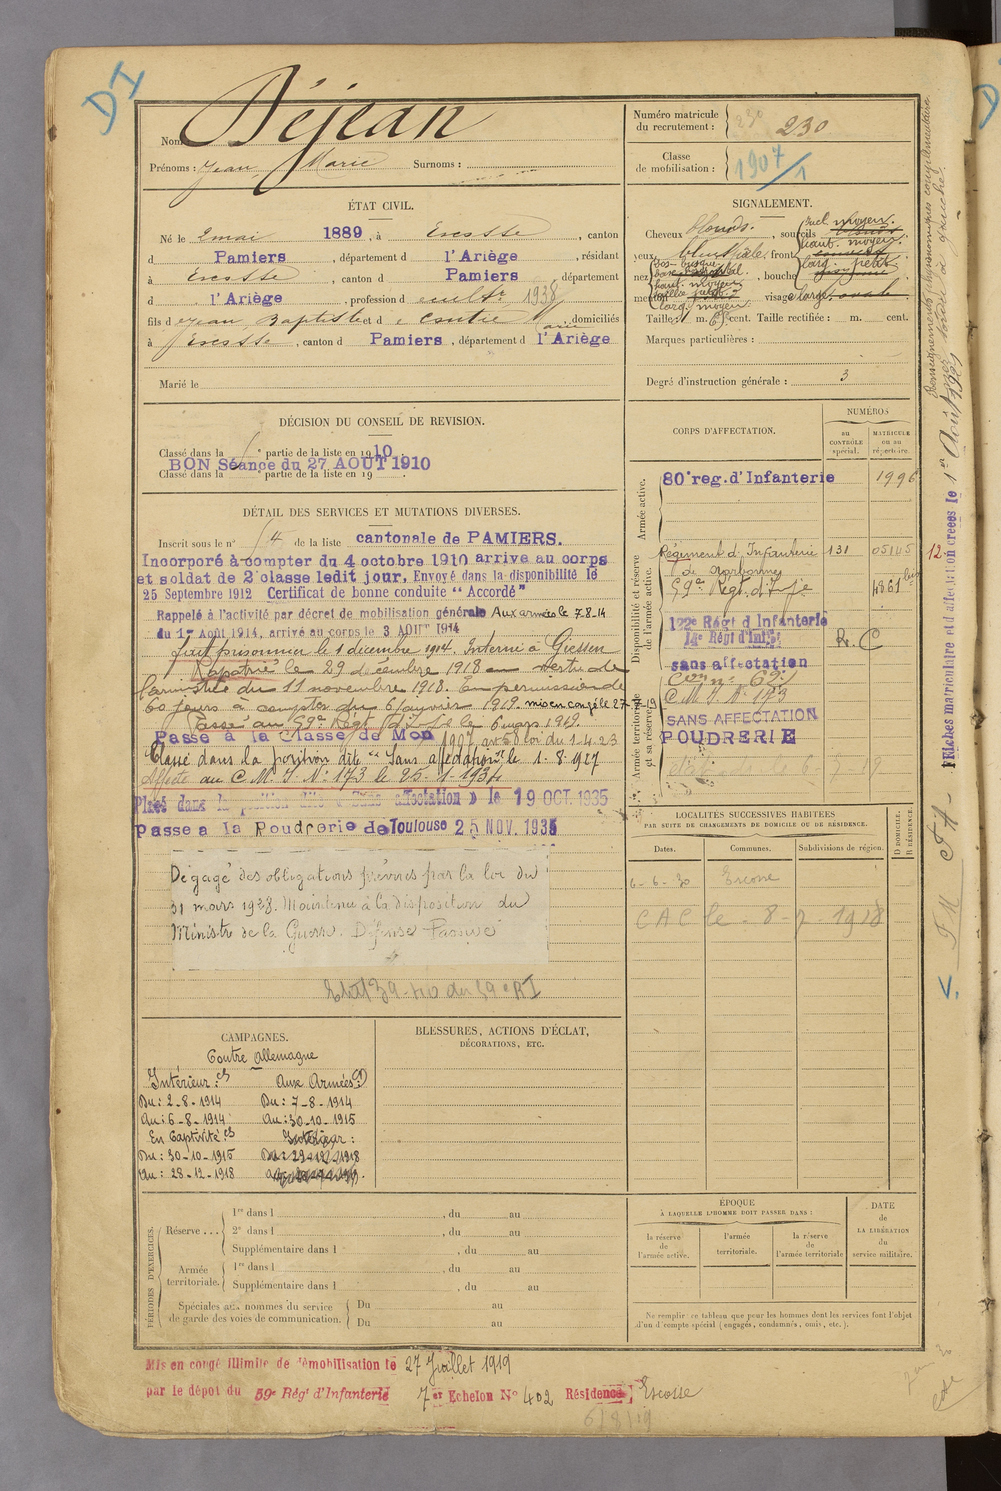 DI
Nom Déjean
Prénoms : Jean Marie Surnoms :
Numéro matricule du recrutement : 230
Classe de mobilisation : 1907/1
ÉTAT CIVIL.
Né le 2 mai 1889, à Escosse, canton
d Pamiers, département d l'Ariège, résidant
à Escosse, canton d Pamiers département
d l'Ariège, profession d cultr 1938
fils d Jean Baptiste et d e Marie, domiciliés
à Escosse, canton d Pamiers, département d l'Ariège
Marié le
SIGNALEMENT.
Cheveux blonds, sourcils
yeux front
nez bouche
menton visage
Taille : 1 m. 65 cent. Taille rectifiée : m. cent.
Marques particulières :
Degré d'instruction générale : 3
DÉCISION DU CONSEIL DE REVISION.
Classé dans la 1e partie de la liste en 1910
BON Séance du 27 AOUT 1910
Classé dans la e partie de la liste en 19 .
DÉTAIL DES SERVICES ET MUTATIONS DIVERSES.
Inscrit sous le n° 14 de la liste cantonale de PAMIERS.
Incorporé à compter du 4 octobre 1910 arrive au corps
et soldat de 2e classe ledit jour. Envoyé dans la disponibilité le
25 Septembre 1912 Certificat de bonne conduite "Accordé"
Rappelé à l'activité par décret de mobilisation générale Aux armées le 7-8-14
du 1er Août 1914, arrivé au corps le 3 AOUT 1914
fait prisonnier le 1 décembre 1914. Interné à Giessen
Rapatrié le 29 décembre 1918 en vertu de
l'armistice du 11 novembre 1918. En permission de
60 jours à compter du 6 janvier 1919. mis en congé le 27-7-19
Passé au 59e Régt d'Ie le 6 mars 1919.
Passé à la Classe de Mon 1907 art 58 loi du 1-4-23
Classé dans la position dite "Sans affectation" le 1-8-1927
Affecté au C.M.I. N° 173 le 25-1-1934
Placé dans la position dite « Sans affectation » le 19 OCT. 1935
Passé a la Poudrerie de Toulouse 25 NOV. 1935
Dégagé des obligations prévues par la loi du
31 mars 1928. Maintenu à la disposition du
Ministre de la Guerre. Défense Passive
Etat 39-40 du 59e RI
CORPS D'AFFECTATION.
NUMÉROS
au CONTRÔLE spécial.
MATRICULE ou au répertoire.
Armée active.
80e reg. d'Infanterie 1996
Disponibilité et réserve de l'armée active.
Régiment d'Infanterie 131 05145
de Narbonne
59e Régt d'Ie 4861 bis
122e Régt d'Infanterie
14e Régt d'Infie R. C
sans affectation
Armée territoriale et sa réserve.
C.M.I. N° 173
SANS AFFECTATION
POUDRERIE
LOCALITÉS SUCCESSIVES HABITÉES
PAR SUITE DE CHANGEMENTS DE DOMICILE OU DE RÉSIDENCE.
Dates. Communes. Subdivisions de région. D DOMICILE. R RÉSIDENCE.
6-6-30 Escosse
CAC le 8-7-1918
CAMPAGNES.
Contre Allemagne
Intérieur : CS Aux Armées : CD
Du : 2-8-1914 Du : 7-8-1914
Au : 6-8-1914 Au : 30-10-1915
En Captivité CS Intérieur :
Du : 30-10-1915
Au : 28-12-1918
BLESSURES, ACTIONS D'ÉCLAT,
DÉCORATIONS, ETC.
PÉRIODES D'EXERCICES.
Réserve ... 1re dans l , du au
2e dans l , du au
Supplémentaire dans l , du au
Armée territoriale. 1re dans l , du au
Supplémentaire dans l , du au
Spéciales aux hommes du service de garde des voies de communication. Du au
Du au
ÉPOQUE
À LAQUELLE L'HOMME DOIT PASSER DANS :
la réserve de l'armée active.
l'armée territoriale.
la réserve de l'armée territoriale
DATE de LA LIBÉRATION du service militaire.
Ne remplir ce tableau que pour les hommes dont les services font l'objet
d'un compte spécial (engagés, condamnés, omis, etc.).
Mis en congé illimité de démobilisation le 27 Juillet 1919
par le dépot du 59e Régt d'Infanterie 7er Echelon N° 402 Résidence : Escosse
6/8/19
Renseignements physionomiques complémentaires
Fiches matriculaire et d'affectation créées le 1er Août 1929
12